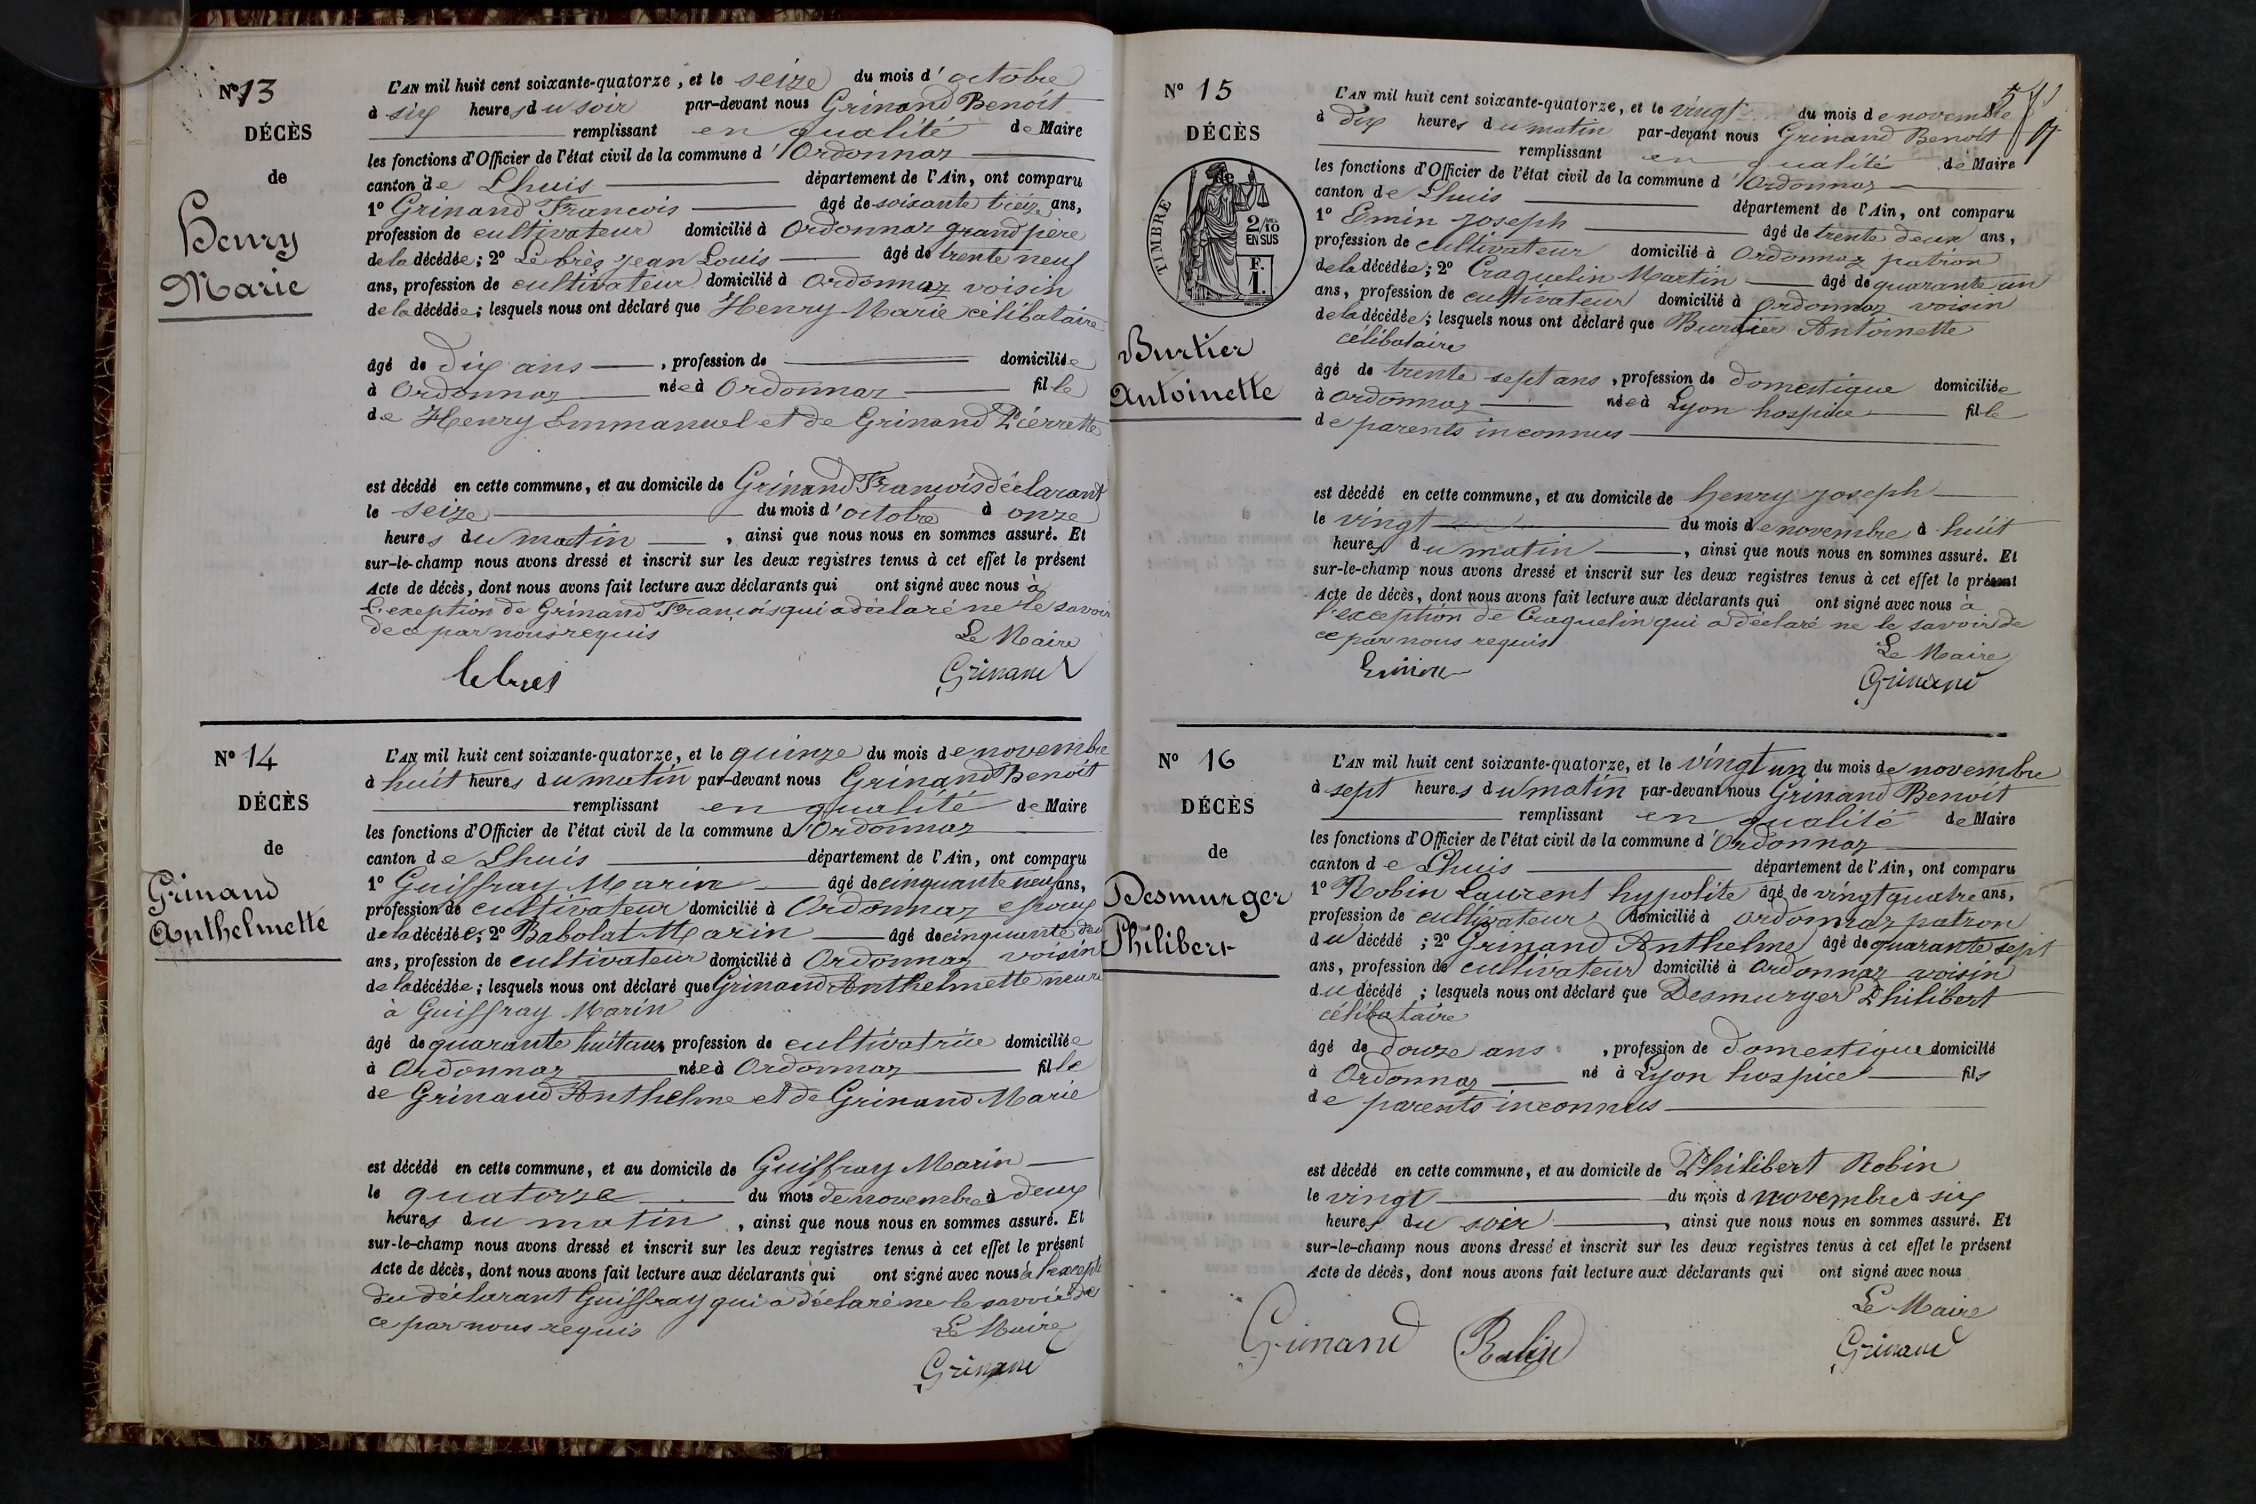 Nº 13
DÉCÈS
de
Henry
Marie
L'AN mil huit cent soixante-quatorze, et le seize du mois d'octobre
à six heures du soir par-devant nous Grinand Benoit
remplissant en qualité de Maire
les fonctions d'Officier de l'état civil de la commune d'Ordonnaz
canton de Lhuis département de l'Ain, ont comparu
1º Grinand François âgé de soixante treize ans,
profession de cultivateur domicilié à Ordonnaz grand père
de la décédée; 2º Le brès Jean Louis âgé de trente neuf
ans, profession de cultivateur domicilié à Ordonnaz voisin
de la décédée; lesquels nous ont déclaré que Henry Marie célibataire
âgé de dix ans, profession de domiciliée
à Ordonnaz née à Ordonnaz fille
de Henry Emmanuel et de Grinand Pierrette
est décédé en cette commune, et au domicile de Grinand François déclarant
le seize du mois d'octobre à onze
heures du matin, ainsi que nous nous en sommes assuré. Et
sur-le-champ nous avons dressé et inscrit sur les deux registres tenus à cet effet le présent
Acte de décès, dont nous avons fait lecture aux déclarants qui ont signé avec nous à
l'exeption de Grinand François qui a déclaré ne le savoir
de ce par nous requis
Le Maire
lebres
Grinand
Nº 14
DÉCÈS
de
Grinand
Anthelmette
L'AN mil huit cent soixante-quatorze, et le quinze du mois de novembre
à huit heures du matin par-devant nous Grinand Benoit
remplissant en qualité de Maire
les fonctions d'Officier de l'état civil de la commune d'Ordonnaz
canton de Lhuis département de l'Ain, ont comparu
1º Guiffray Marin âgé de cinquante neuf ans,
profession de cultivateur domicilié à Ordonnaz époux
de la décédée; 2º Babolat Marin âgé de cinquante deux
ans, profession de cultivateur domicilié à Ordonnaz voisin
de la décédée; lesquels nous ont déclaré que Grinand Anthelmette
à Guiffray Marin
âgé de quarante huit ans profession de cultivatrice domiciliée
à Ordonnaz née à Ordonnaz fille
de Grinand Anthelme et de Grinand Marie
est décédé en cette commune, et au domicile de Guiffray Marin
le quatorze du mois de novembre à deux
heures du matin, ainsi que nous nous en sommes assuré. Et
sur-le-champ nous avons dressé et inscrit sur les deux registres tenus à cet effet le présent
Acte de décès, dont nous avons fait lecture aux déclarants qui ont signé avec nous à l'except
du déclarant Guiffray qui a déclaré ne le savoir de
ce par nous requis
Le Maire
Grinand
Nº 15
DÉCÈS
de
TIMBRE
2/10
EN SUS
F.
1.
Burtier
Antoinette
L'AN mil huit cent soixante-quatorze, et le vingt du mois de novembre
à dix heures du matin par-devant nous Grinand Benoit
remplissant en qualité de Maire
les fonctions d'Officier de l'état civil de la commune d'Ordonnaz
canton de Lhuis département de l'Ain, ont comparu
1º Emin Joseph âgé de trente deux ans,
profession de cultivateur domicilié à Ordonnaz patron
de la décédée; 2º Craquelin Martin âgé de quarante un
ans, profession de cultivateur domicilié à Ordonnaz voisin
de la décédée; lesquels nous ont déclaré que Burtier Antoinette
célibataire
âgé de trente sept ans, profession de domestique domiciliée
à Ordonnaz née à Lyon hospice fille
de parents inconnus
est décédé en cette commune, et au domicile de henry Joseph
le vingt du mois de novembre à huit
heures du matin, ainsi que nous nous en sommes assuré. Et
sur-le-champ nous avons dressé et inscrit sur les deux registres tenus à cet effet le présent
Acte de décès, dont nous avons fait lecture aux déclarants qui ont signé avec nous à
l'exception de Craquelin qui a déclaré ne le savoir de
ce par nous requis
Le Maire
Grinand
Nº 16
DÉCÈS
de
Desmurger
Philibert
L'AN mil huit cent soixante-quatorze, et le vingt un du mois de novembre
à sept heures du matin par-devant nous Grinand Benoit
remplissant en qualité de Maire
les fonctions d'Officier de l'état civil de la commune d'Ordonnaz
canton de Lhuis département de l'Ain, ont comparu
1º Robin Laurent hypolite âgé de vingt quatre ans,
profession de cultivateur domicilié à Ordonnaz patron
du décédé; 2º Grinand Anthelme âgé de quarante sept
ans, profession de cultivateur domicilié à Ordonnaz voisin
du décédé; lesquels nous ont déclaré que Desmurger Philibert
célibataire
âgé de douze ans, profession de domestique domicilié
à Ordonnaz né à Lyon hospice fils
de parents inconnus
est décédé en cette commune, et au domicile de Philibert Robin
le vingt du mois d novembre à six
heures du soir, ainsi que nous nous en sommes assuré. Et
sur-le-champ nous avons dressé et inscrit sur les deux registres tenus à cet effet le présent
Acte de décès, dont nous avons fait lecture aux déclarants qui ont signé avec nous
Le Maire
Grinand Robin Grinand